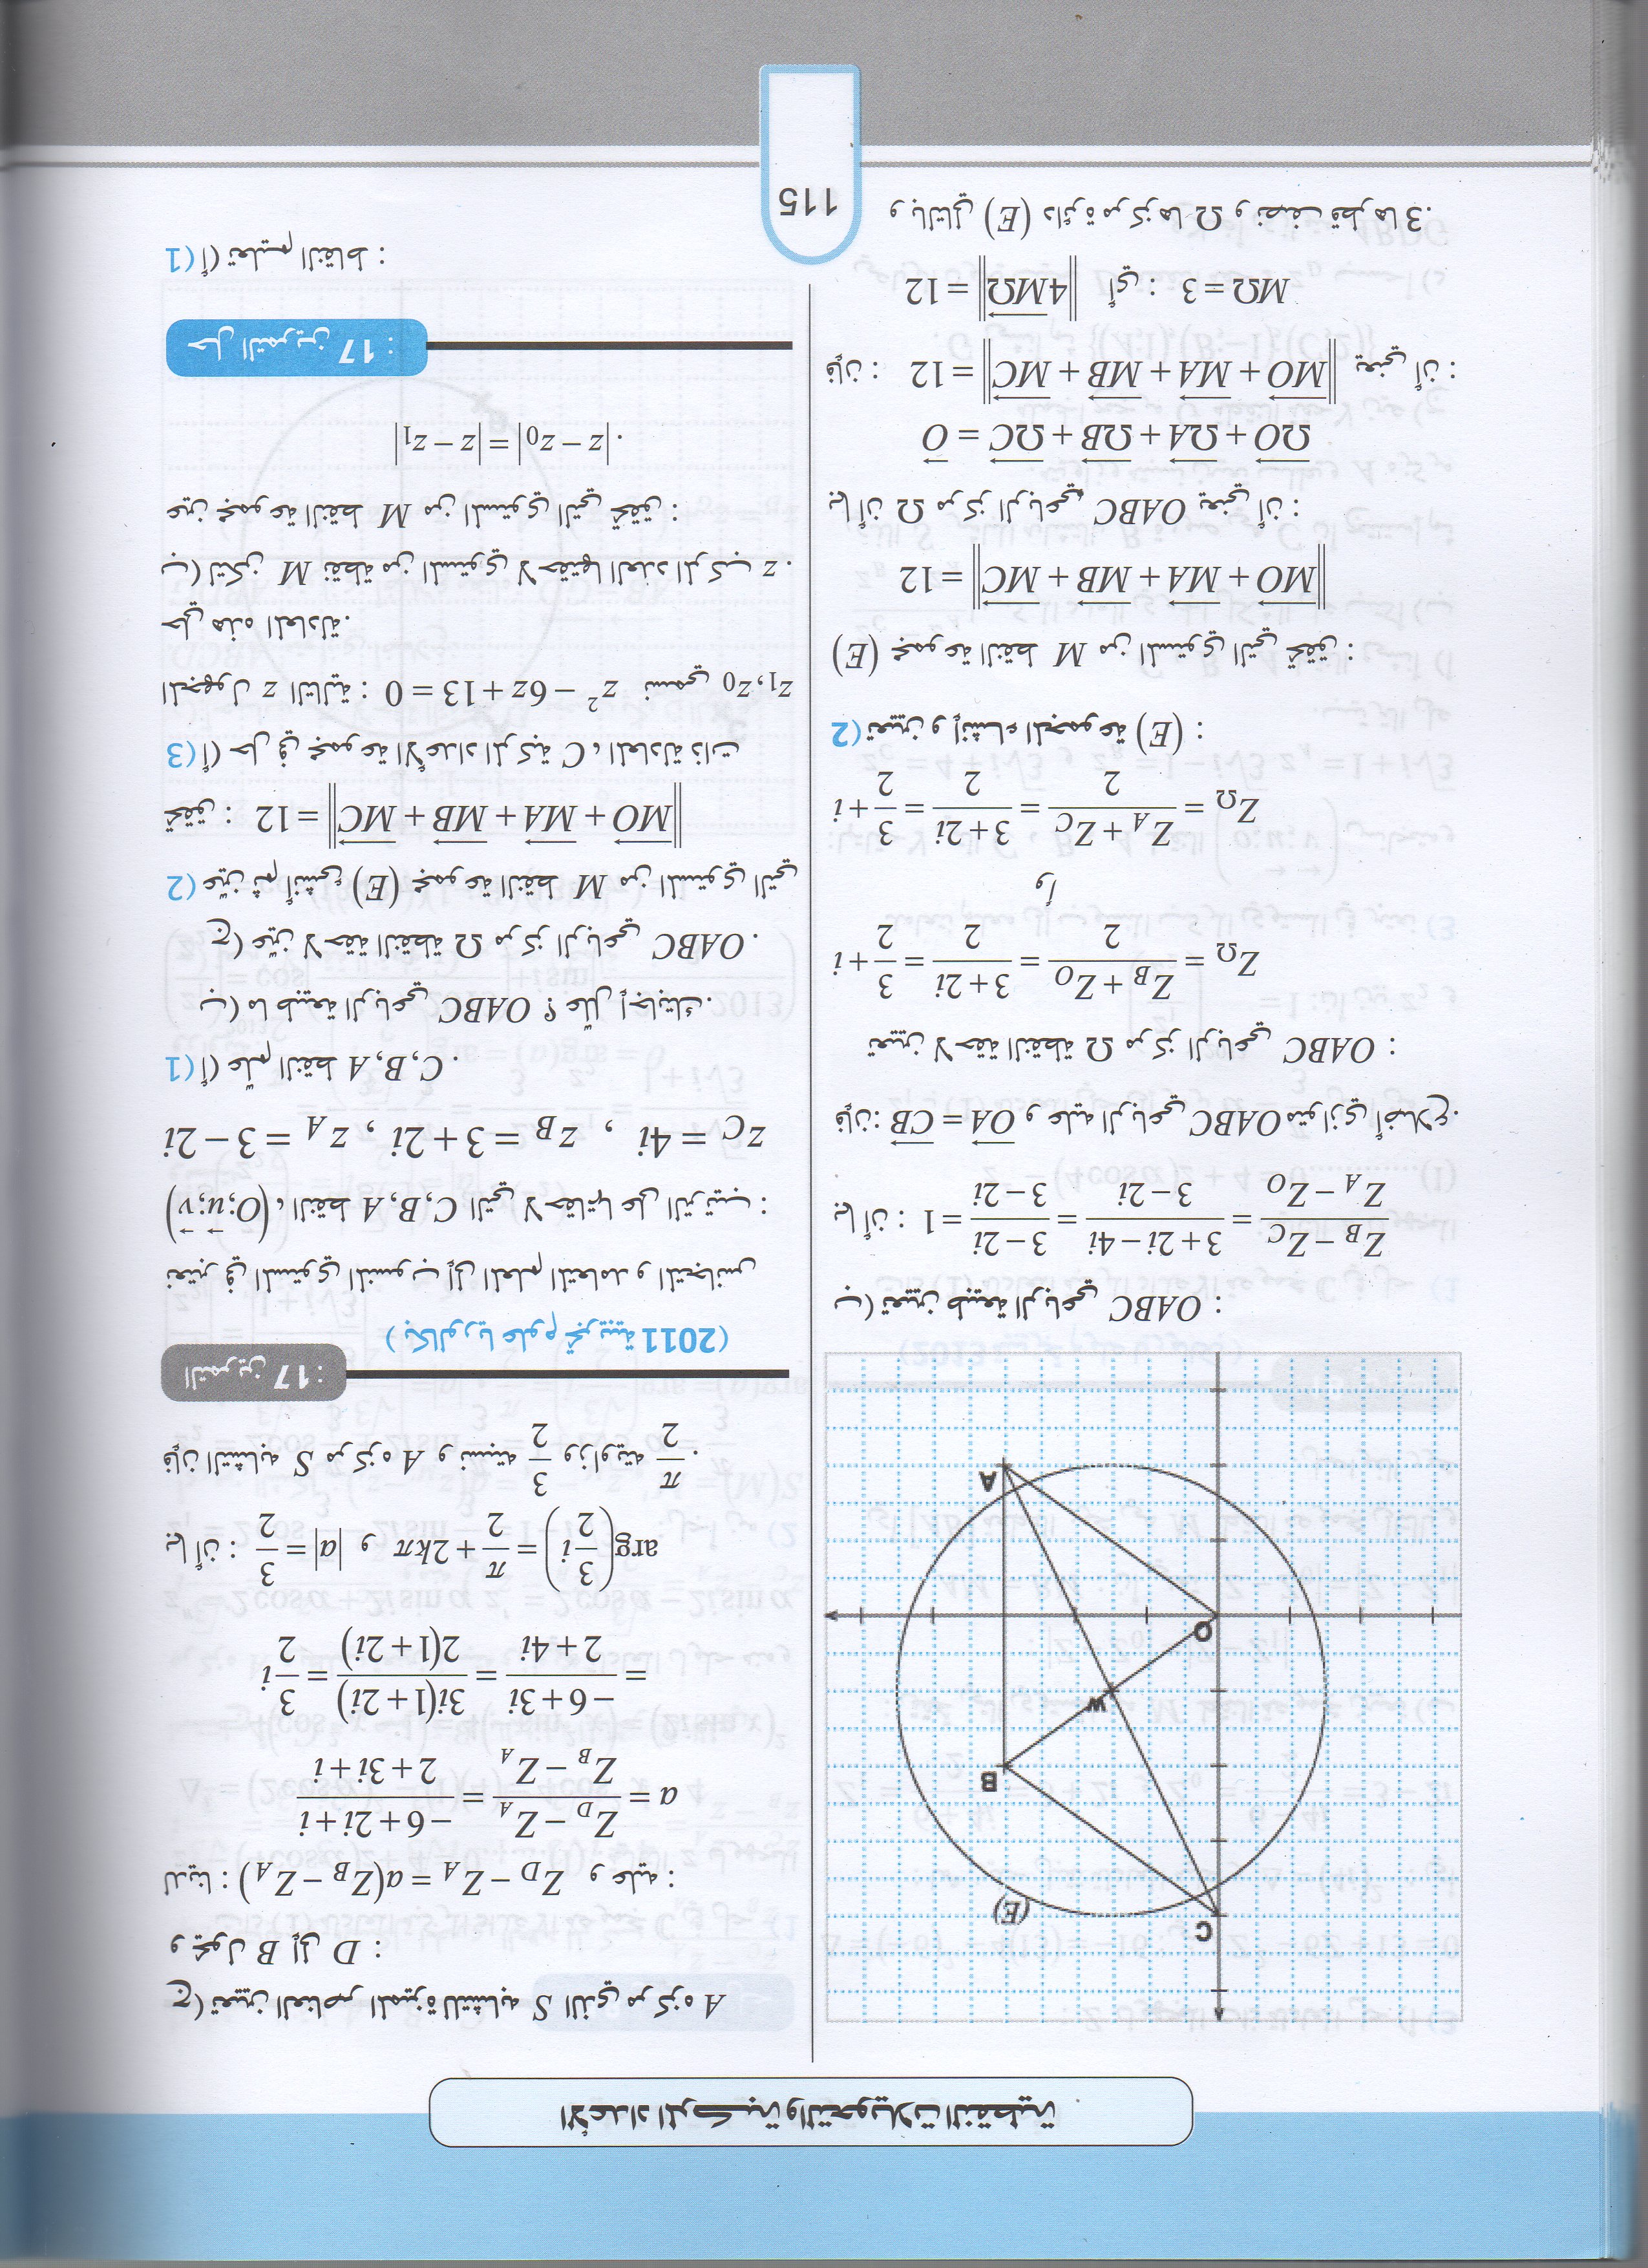 الأعداد المركبة والتحويلات النقطية
ج) تعيين العناصر المميزة للتشابه S الذي مركزه A
و يحول B إلى D :
لدينا : Z_D − Z_A = a(Z_B − Z_A) و عليه :
a = (Z_D − Z_A)/(Z_B − Z_A) = (−6+2i+i)/(2+3i+i)
= (−6+3i)/(2+4i) = 3i(1+2i)/2(1+2i) = 3/2 i
بما أن : |a| = 3/2 و arg(3/2 i) = π/2 + 2kπ
فإن التشابه S مركزه A و نسبته 3/2 وزاويته π/2.
التمرين 17 :
(بكالوريا علوم تجريبية 2011)
نعتبر في المستوي المنسوب إلى المعلم المتعامد و المتجانس
(O;u;v)، النقط C,B,A التي لاحقاتها على الترتيب :
z_C = 4i , z_B = 3+2i , z_A = 3−2i
1) أ) علّم النقط C,B,A.
ب) ما طبيعة الرباعي OABC ؟ علّل إجابتك.
ج) عيّن لاحقة النقطة Ω مركز الرباعي OABC.
2) عيّن ثم أنشئ (E) مجموعة النقط M من المستوي التي
تحقق : ||MO + MA + MB + MC|| = 12
3) أ) حل في مجموعة الأعداد المركبة C، المعادلة ذات
المجهول z التالية : z² − 6z + 13 = 0 نسمي z₁,z₀
حلي هذه المعادلة.
ب) لتكن M نقطة من المستوي لاحقتها العدد المركب z.
عين مجموعة النقط M من المستوي التي تحقق :
|z − z₀| = |z − z₁|.
حل التمرين 17 :
1) أ) تعليم النقاط :
C
(E)
B
W
O
A
ب) تعيين طبيعة الرباعي OABC :
بما أن : (Z_B − Z_C)/(Z_A − Z_O) = (3+2i−4i)/(3−2i) = (3−2i)/(3−2i) = 1
فإن: OA = CB و عليه الرباعي OABC متوازي أضلاع.
تعيين لاحقة النقطة Ω مركز الرباعي OABC :
Z_Ω = (Z_B + Z_O)/2 = (3+2i)/2 = 3/2 + i
أو
Z_Ω = (Z_A + Z_C)/2 = (3+2i)/2 = 3/2 + i
2) تعيين و إنشاء المجموعة (E) :
(E) مجموعة النقط M من المستوي التي تحقق :
||MO + MA + MB + MC|| = 12
بما أن Ω مركز الرباعي OABC يعني أن :
ΩO + ΩA + ΩB + ΩC = O
يعني أن ||MO + MA + MB + MC|| = 12 فإن :
||4MΩ|| = 12 أي : MΩ = 3
و بالتالي (E) دائرة مركزها Ω و نصف قطرها 3.
115